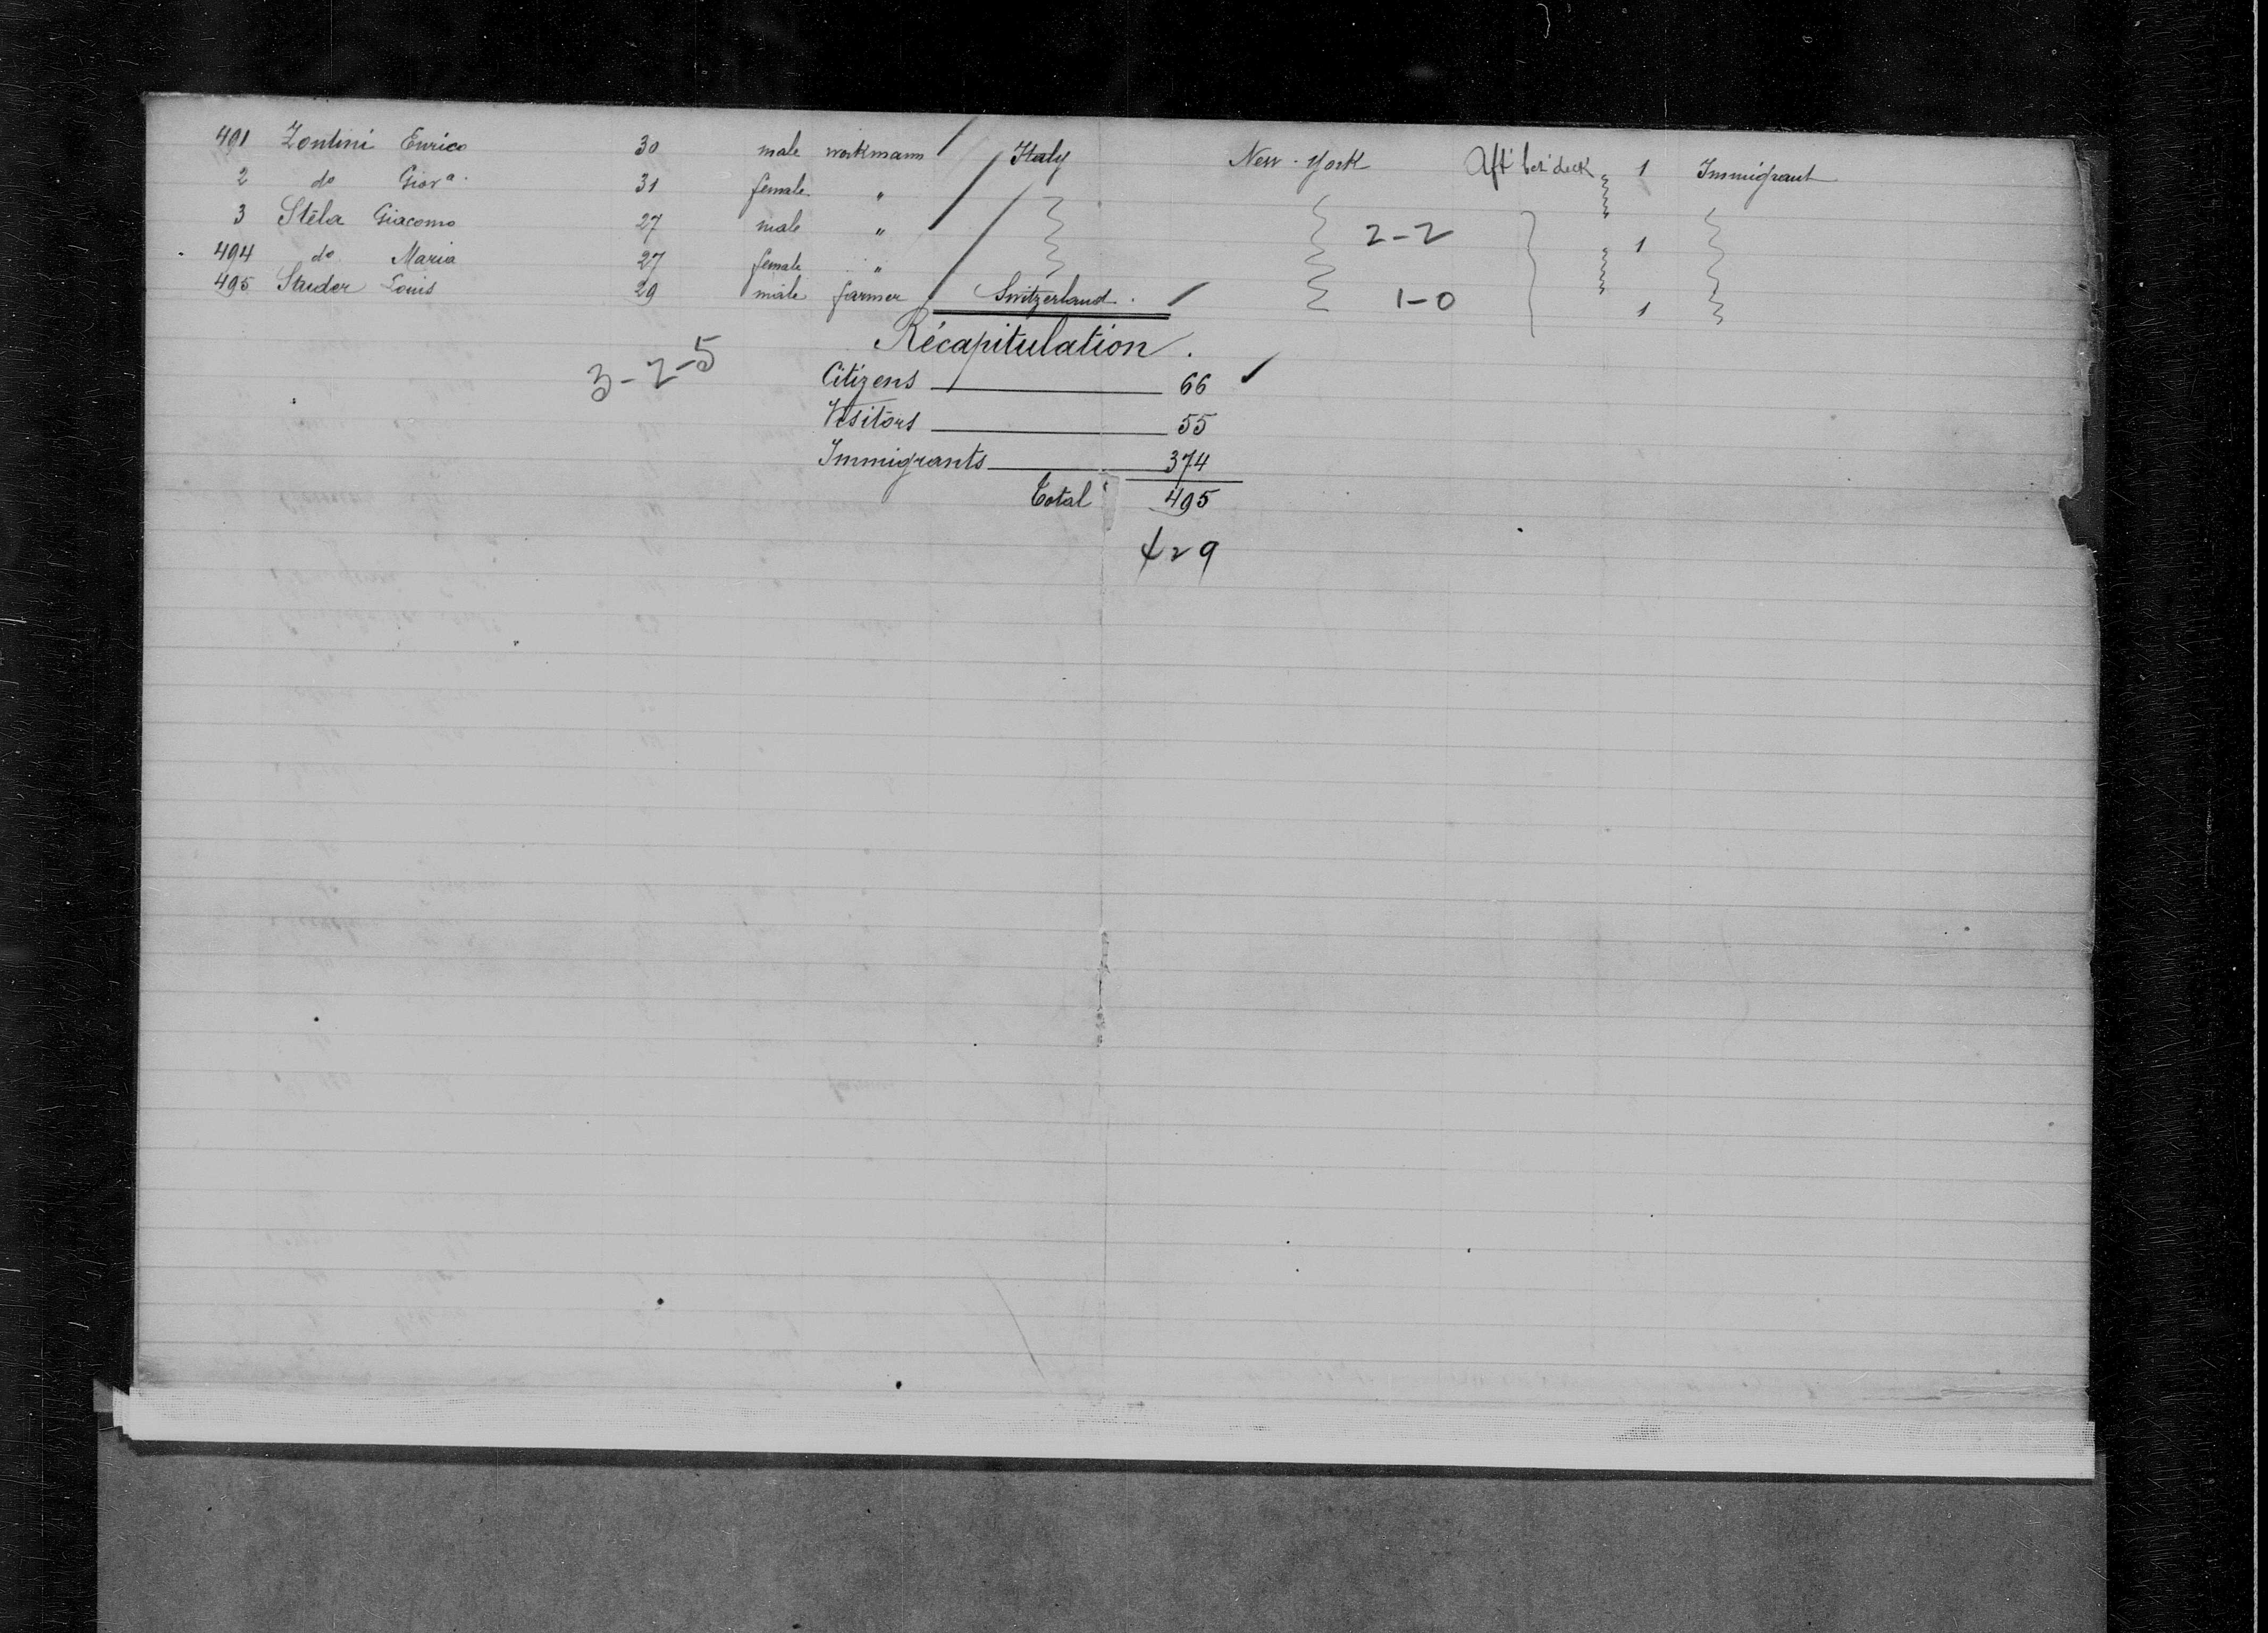 491 Zontini Enrico 30 male workmann Italy New-York Aft bet' deck 1 Immigrant
2 do Giova. 31 female "
3 Stéla Giacomo 27 male " 2-2 1
494 do Maria 27 female "
495 Studer Louis 29 male farmer Switzerland. 1-0 1
Récapitulation.
3-2-5
Citizens 66
Visitors 55
Immigrants 374
Total 495
429